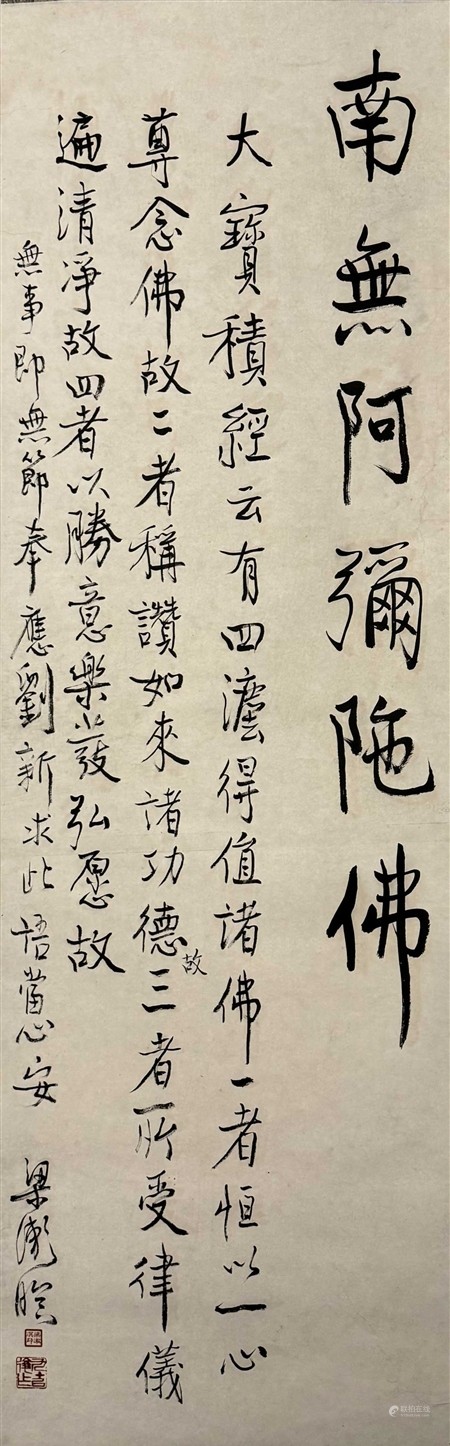 南無阿彌陀佛
大寶積經云有四法得值諸佛一者恒以一心
尊念佛故二者稱讚如來諸功德故三者所受律儀
遍清淨故四者以勝意樂發弘愿故
無事即無節奉應劉新求此語當心安 梁漱暝